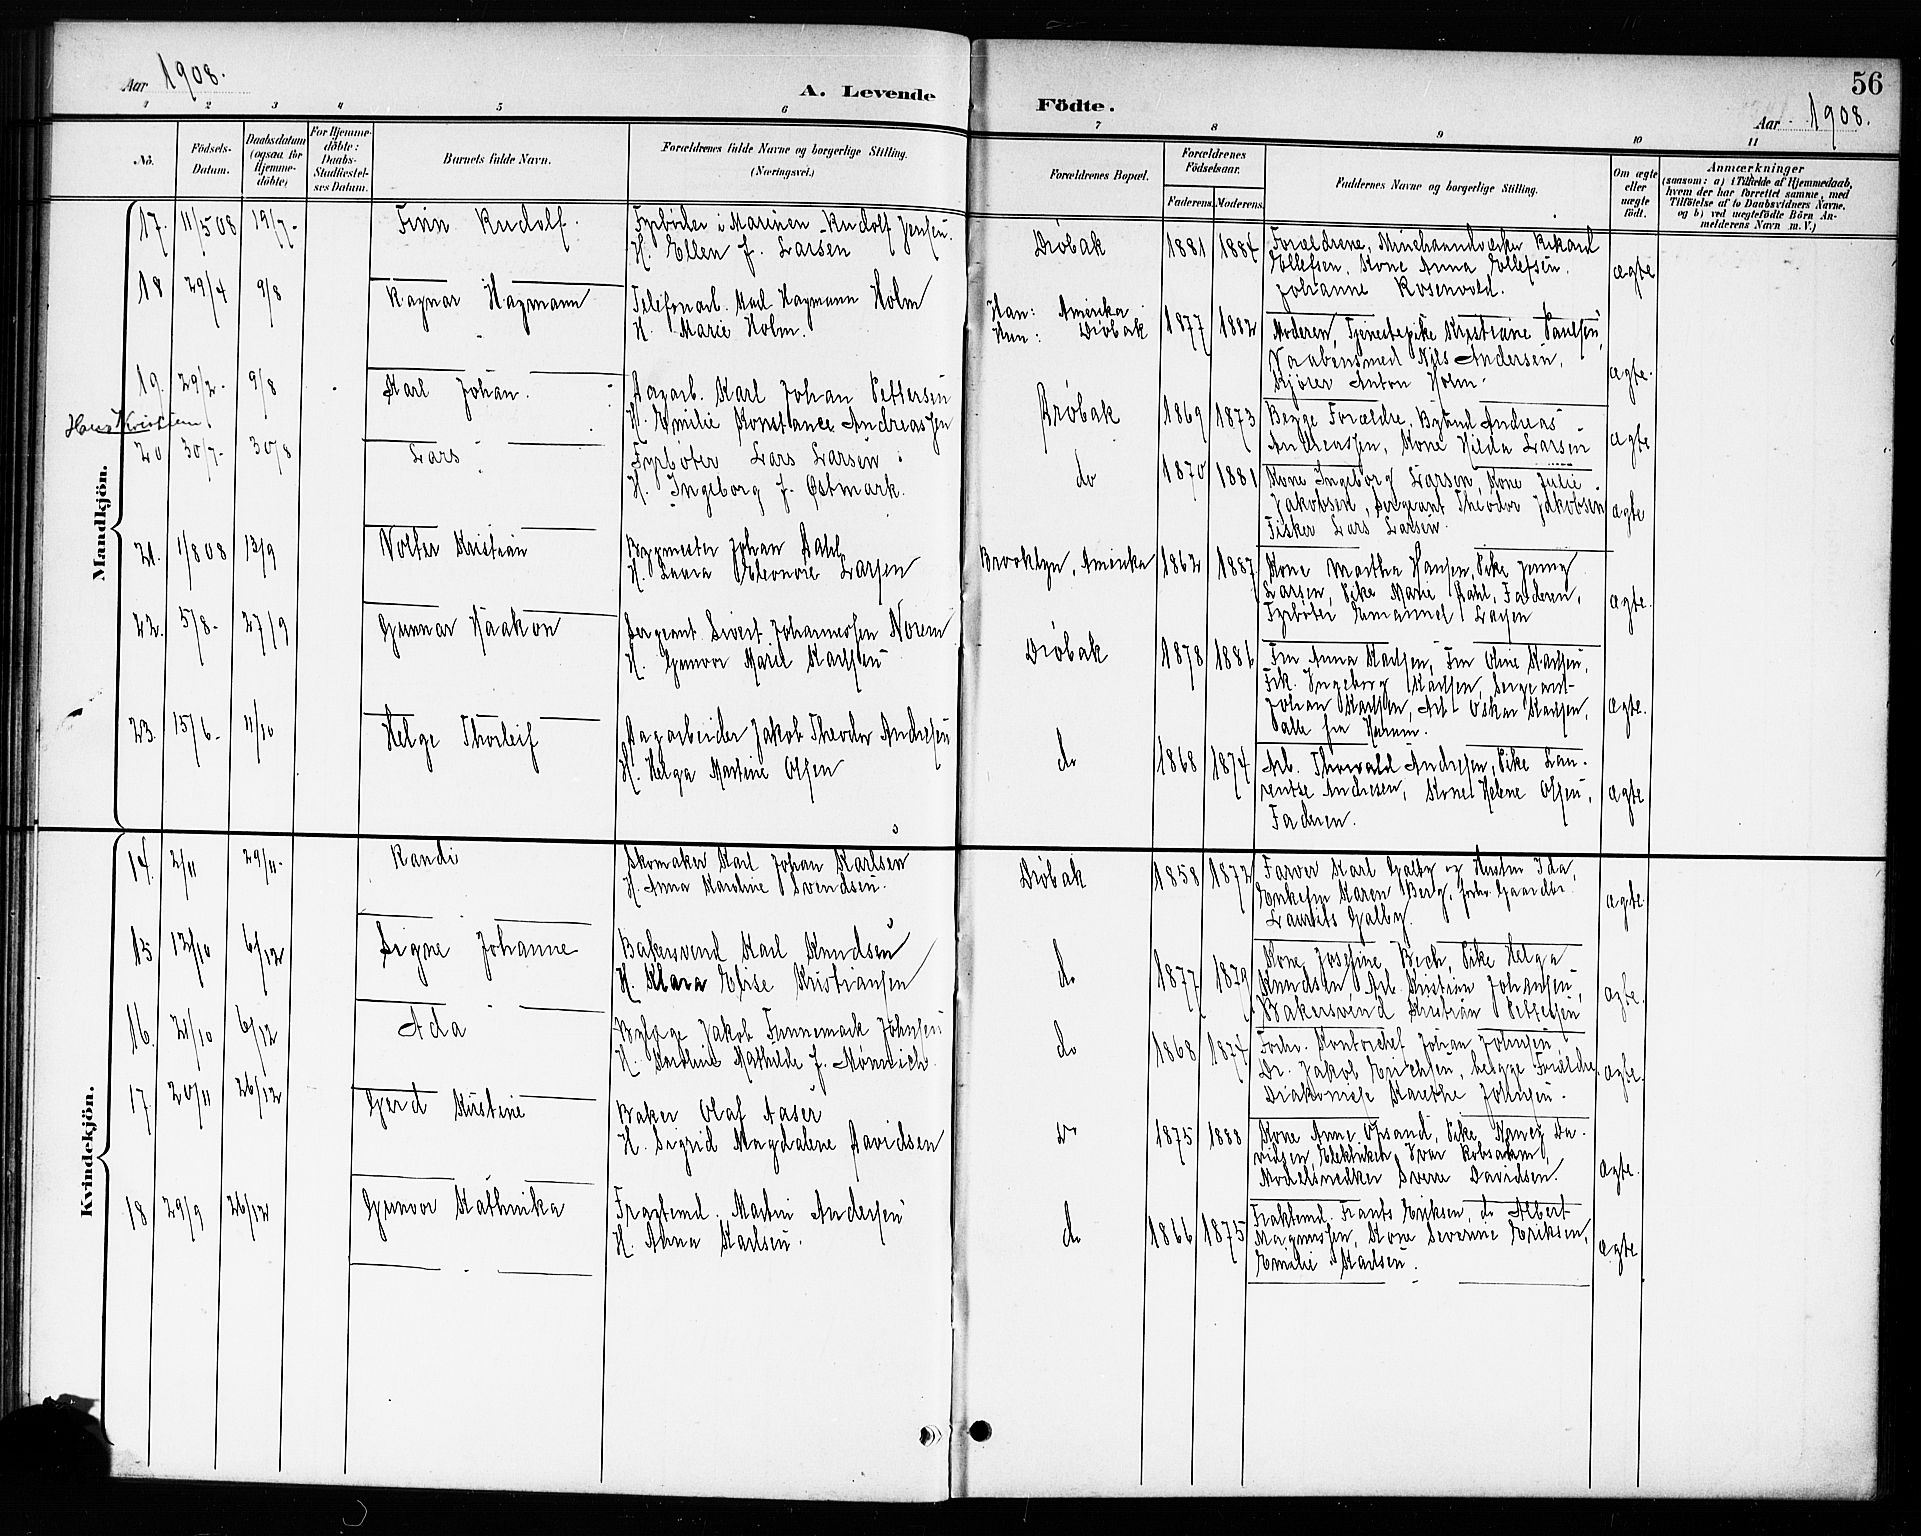 56
Aar 1908.
A. Levende Födte.
Aar 1908.
1 2 3 4 5 6 7 8 9 10 11
No.
Födsels-Datum.
Daabsdatum (ogsaa for Hjemme-döbte)
For Hjemme-döbte: Daabs-Stadfæstel-ses Datum.
Barnets fulde Navn.
Forældrenes fulde Navne og borgerlige Stilling.
(Næringsvei.)
Forældrenes Bopæl.
Forældrenes Födselsaar.
Faderens. Moderens.
Faddernes Navne og borgerlige Stilling.
Om ægte eller uægte födt.
Anmærkninger
(saasom: a) i Tilfælde af Hjemmedaab, hvem der har forrettet samme, med Tilföielse af to Daabsvidners Navne, og b) ved uægtefödte Börn An-melderens Navn m. V.)
Mandkjön.
17. 11/5 08 19/7 - Finn Rudolf.
Fyrböter i Marinen Rudolf Jensen.
H. Ellen f. Larsen
Dröbak 1881 1884
Forældrene, Minehaandværker Rikard
Ellefsen, Kone Anna Ellefsen.
Johanne Rosenvold.
ægte
18 29/4 9/8 Ragnar Hagmann
Telefonarb. Karl Hagmann Holm
H. Marie Holm.
Han: Amerika
Hun: Dröbak
1877 1882
Moderen, Tjenestepike Kristiane Paulsen,
Vaabensmed Nils Andersen,
Kjører Anton Holm.
ægte.
19. 29/2 - 9/8 Karl Johan.
Dagarb. Karl Johan Pettersen
H. Emilie Konstance Andreassen
Dröbak 1869 1873
Begge Forældre, Bybud Andreas
Andreassen, Kone Hilda Larsen
ægte
Hans Kristian
20 30/7 - 30/8 Lars
Fyrböter Lars Larsen
H. Ingeborg f. Østmark.
do 1870 1881
Kone Ingeborg Larsen, Kone Julie
Jakobsen, Sergeant Theodor Jakobsen
Fisker Lars Larsen.
ægte
21. 1/8 08 13/9 Volter Kristian
Bygmester Johan Dahl
H. Laura Eleonore Larsen
Brooklyn, Amerika 1862 1887
Kone Martha Hansen, Pike Jenny
Larsen, Pike Marie Dahl, Faderen,
Fyrböter Emanuel Larsen
ægte.
22. 5/8 - 27/9 Gunnar Haakon
Sergeant Sivert Johannessen Norem
H. Gunvor Marie Karlsen
Dröbak 1878 1886
Fru Anna Karlsen, Fru Oline Karlsen,
Frk. Ingeborg Karlsen, Sergeant
Johan Karlsen, Arb. Oskar Karlsen,
ægte.
23. 15/6 - 11/10 Helge Thorleif
Dagarbeider Jakob Theodor Andresen
H. Helga Martine Olsen
do 1868 1874
Arb. Thorvald Andresen, Pike Lau-
rentse Andresen, Kone Helene Olsen,
Faderen.
ægte
Kvindekjön.
14. 2/11 29/11 - Randi
Skomaker Karl Johan Karlsen
H. Anna Karoline Svendsen.
Dröbak 1858 1872
Farver Karl Galby og Hustru Ida,
Enkefru Karen Berg, forhv. Gaardbr.
Laurits Galby.
ægte.
15 12/10 6/12 Signe Johanne
Bakersvend Karl Knudsen
H. Klara Elise Kristiansen
do 1877 1879
Kone Josefine Bech, Pike Helga
Knudsen, Arb. Kristian Johansen,
Bakersvend Kristian Pettersen
ægte.
16. 21/10 6/12 Ada
Bylæge Jakob Finnemark Johnsen
H. Karoline Mathilde f. Mønnich.
do 1868 1874
Forhv. Kontorchef Johan Johnsen
Dr. Jakob Erichsen, begge Forældre,
Diakonisse Karethe Johnsen.
ægte.
17. 20/11 26/12 Gerd Kristine
Baker Olaf Aaser
H. Sigrid Magdalene Davidsen
do 1875 1888
Kone Anne Opsand, Pike Nancy Da-
vidsen, Elektriker Ivar Robsahm,
Modelsnedker Sverre Davidsen.
ægte.
18 29/9 26/12 Gunvor Kathinka
Fragtemd. Martin Andersen
H. Anna Karlsen.
do 1866 1875
Fraktemd. Frants Eriksen, do Albert
Magnussen, Kone Severine Eriksen,
Emilie Karlsen.
ægte